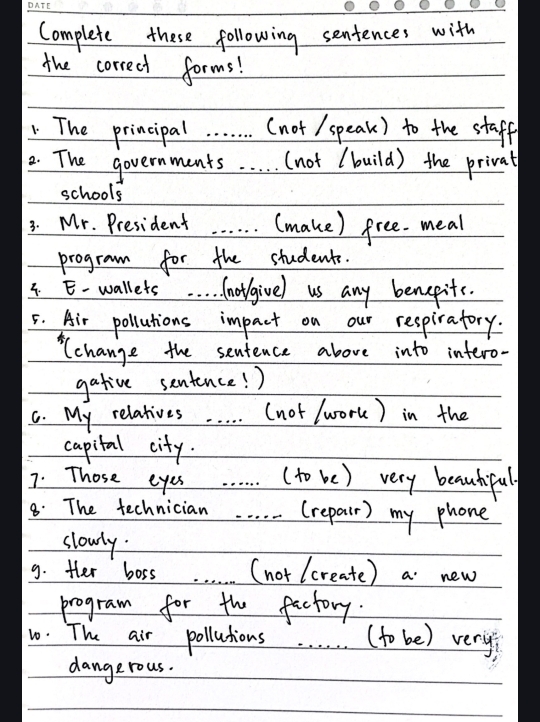 DATE
Complete these following sentences with
the correct forms!
1. The principal ....... (not /speak) to the staff
2. The governments ..... (not /build) the privat
schools
3. Mr. President ...... (make) free-meal
program for the students.
4. E-wallets .....(not/give) us any benefits.
5. Air pollutions impact on our respiratory.
*(change the sentence above into intero-
gative sentence!)
6. My relatives ..... (not /work) in the
capital city.
7. Those eyes ...... (to be) very beautiful.
8. The technician ..... (repair) my phone
slowly.
9. Her boss ...... (not /create) a new
program for the factory.
10. The air pollutions ...... (to be) very
dangerous.